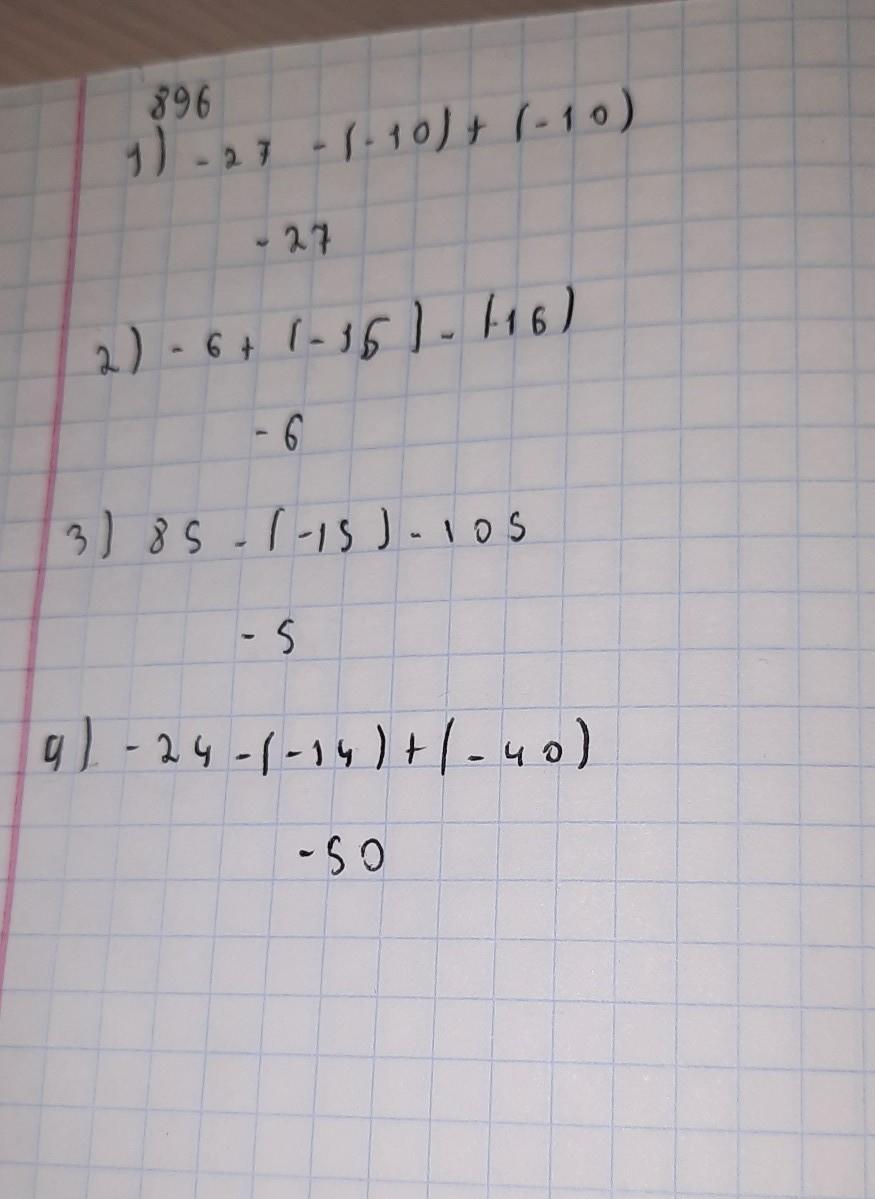 896
1) -27 -(-10)+(-10)
-27
2) -6+(-16)-(-16)
-6
3) 85-(-15)-105
-5
4) -24-(-14)+(-40)
-50